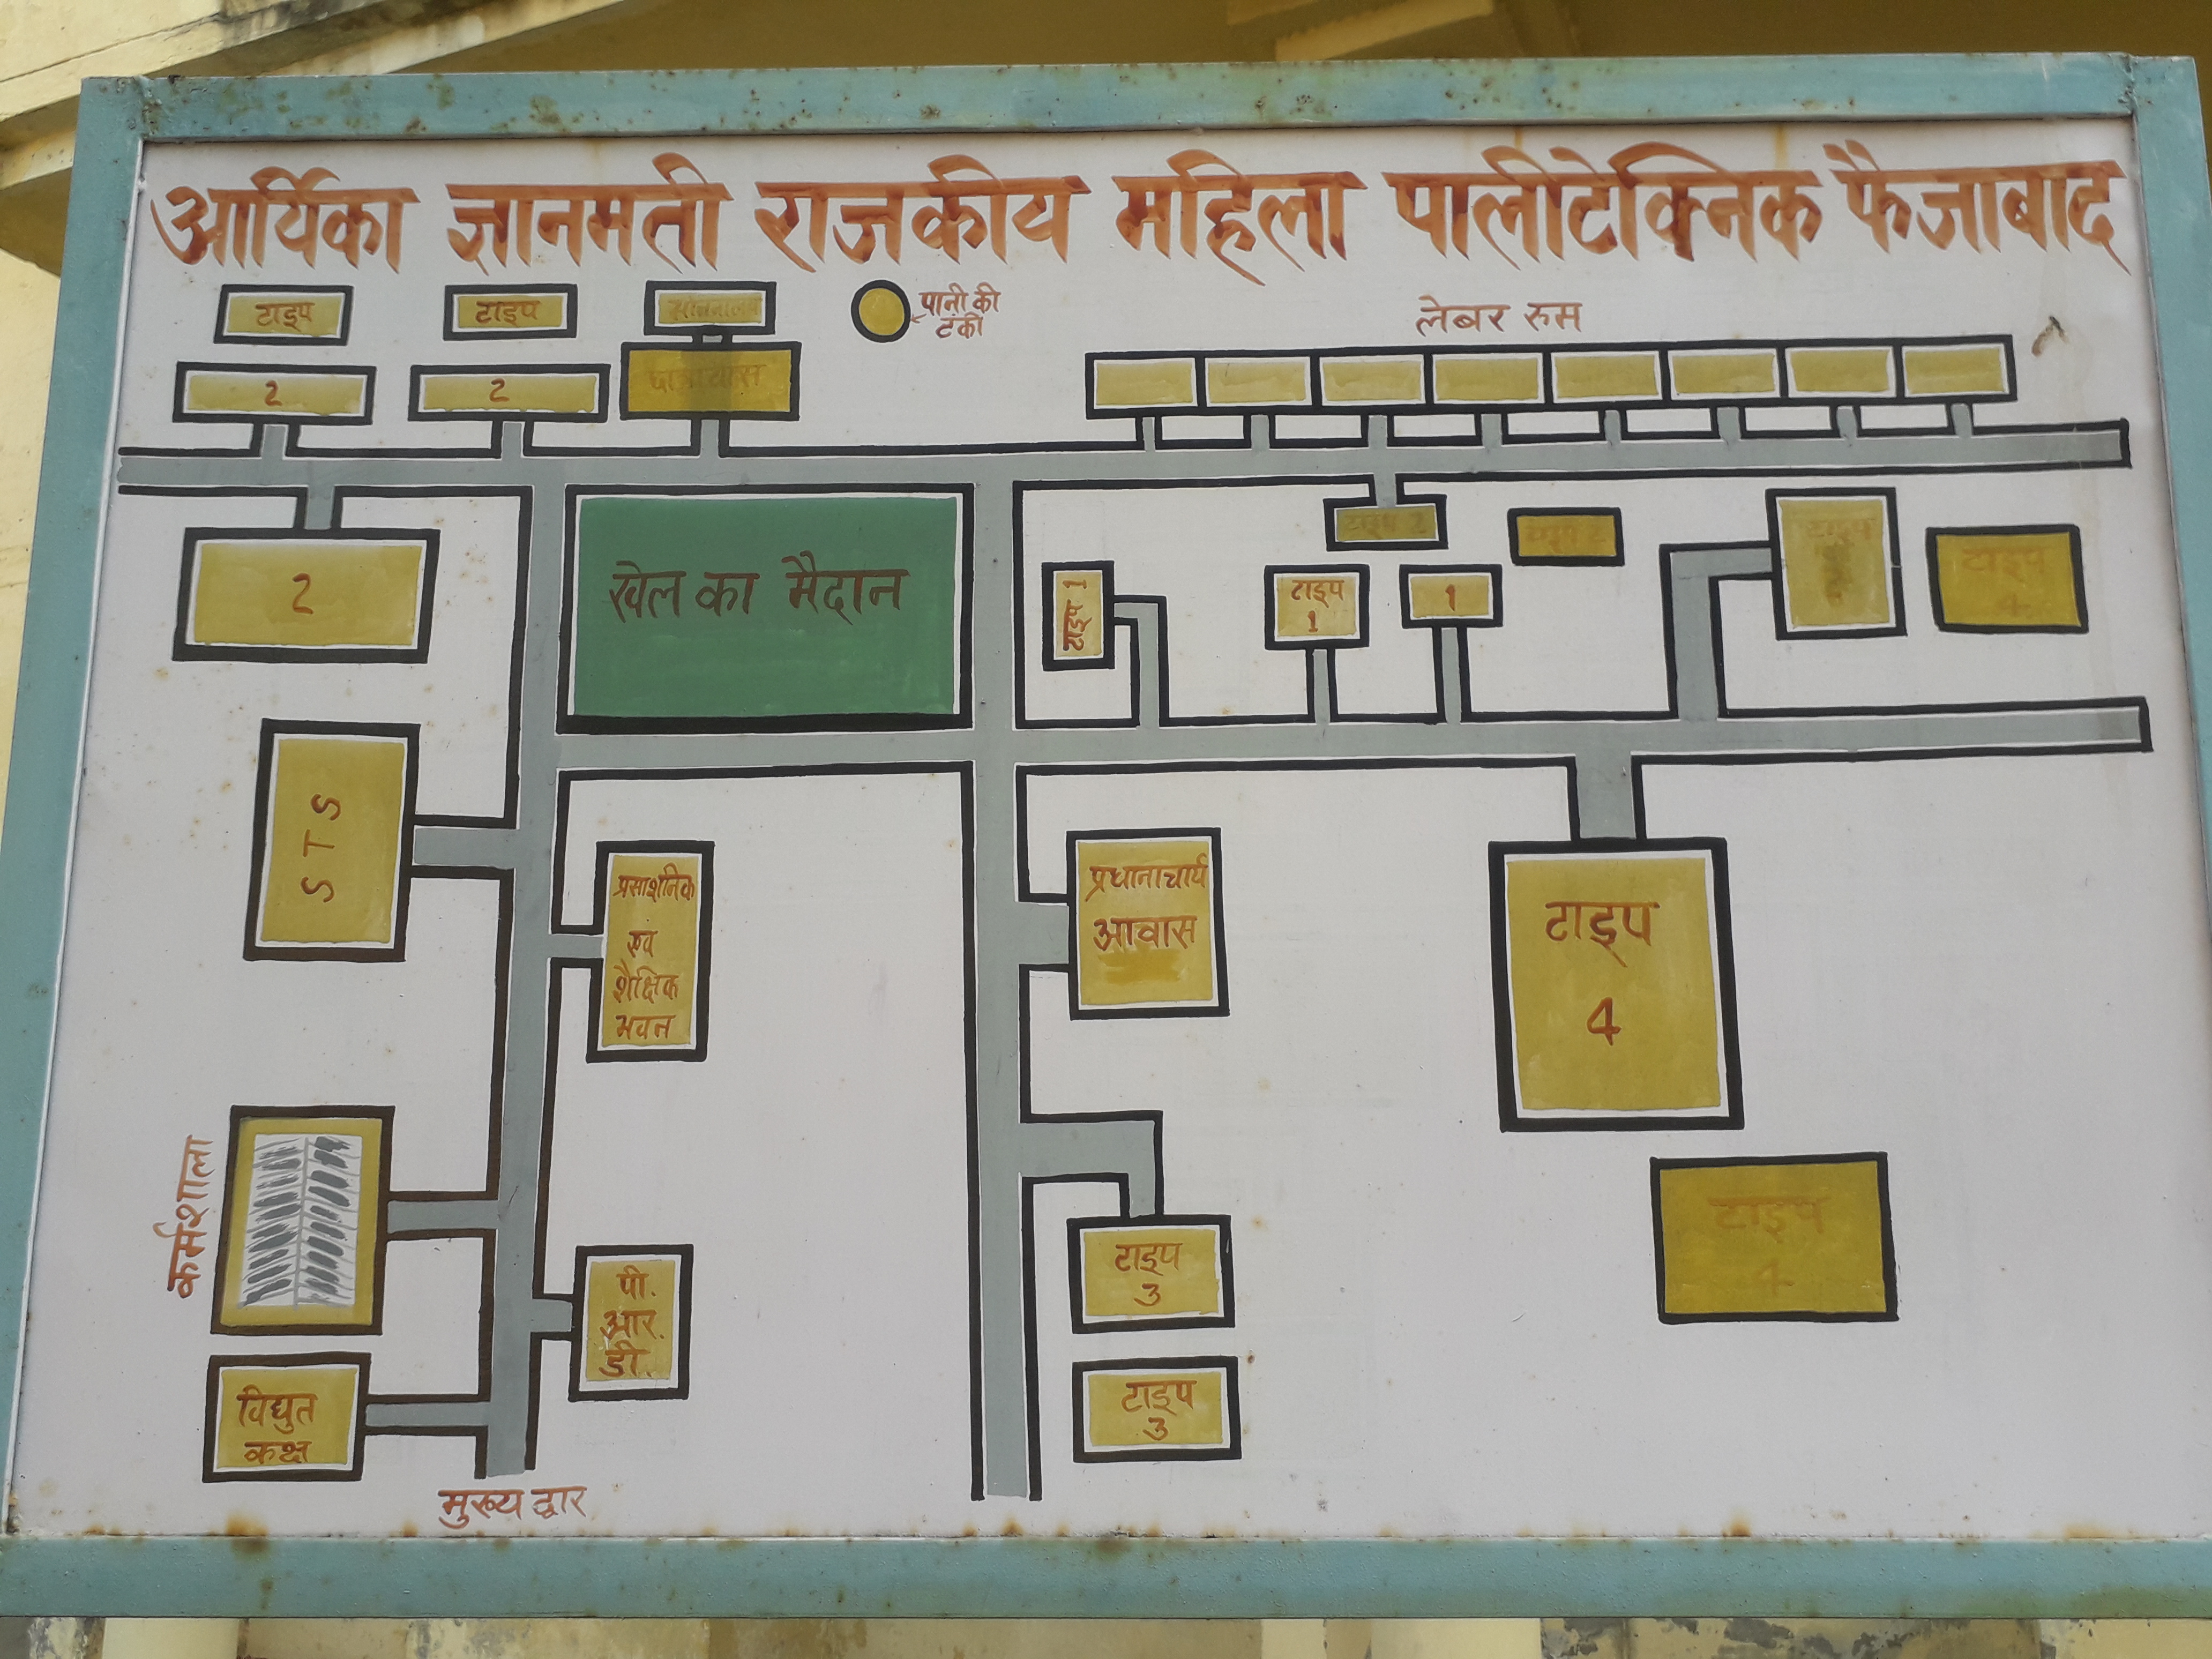 आर्यिका ज्ञानमती राजकीय महिला पालीटेक्निक फैजाबाद
टाइप
टाइप
पानी की
टंकी
लेबर रुम
2
2
2
खेल का मैदान
टाइप 1
टाइप
1
1
टाइप 2
टाइप 2
टाइप
टाइप
4
S T S
प्रसाशनिक
एवं
शैक्षिक
भवन
प्रधानाचार्य
आवास
टाइप
4
कर्मशाला
पी.
आर.
डी.
टाइप
3
टाइप
4
विद्युत
कक्ष
टाइप
3
मुख्य द्वार